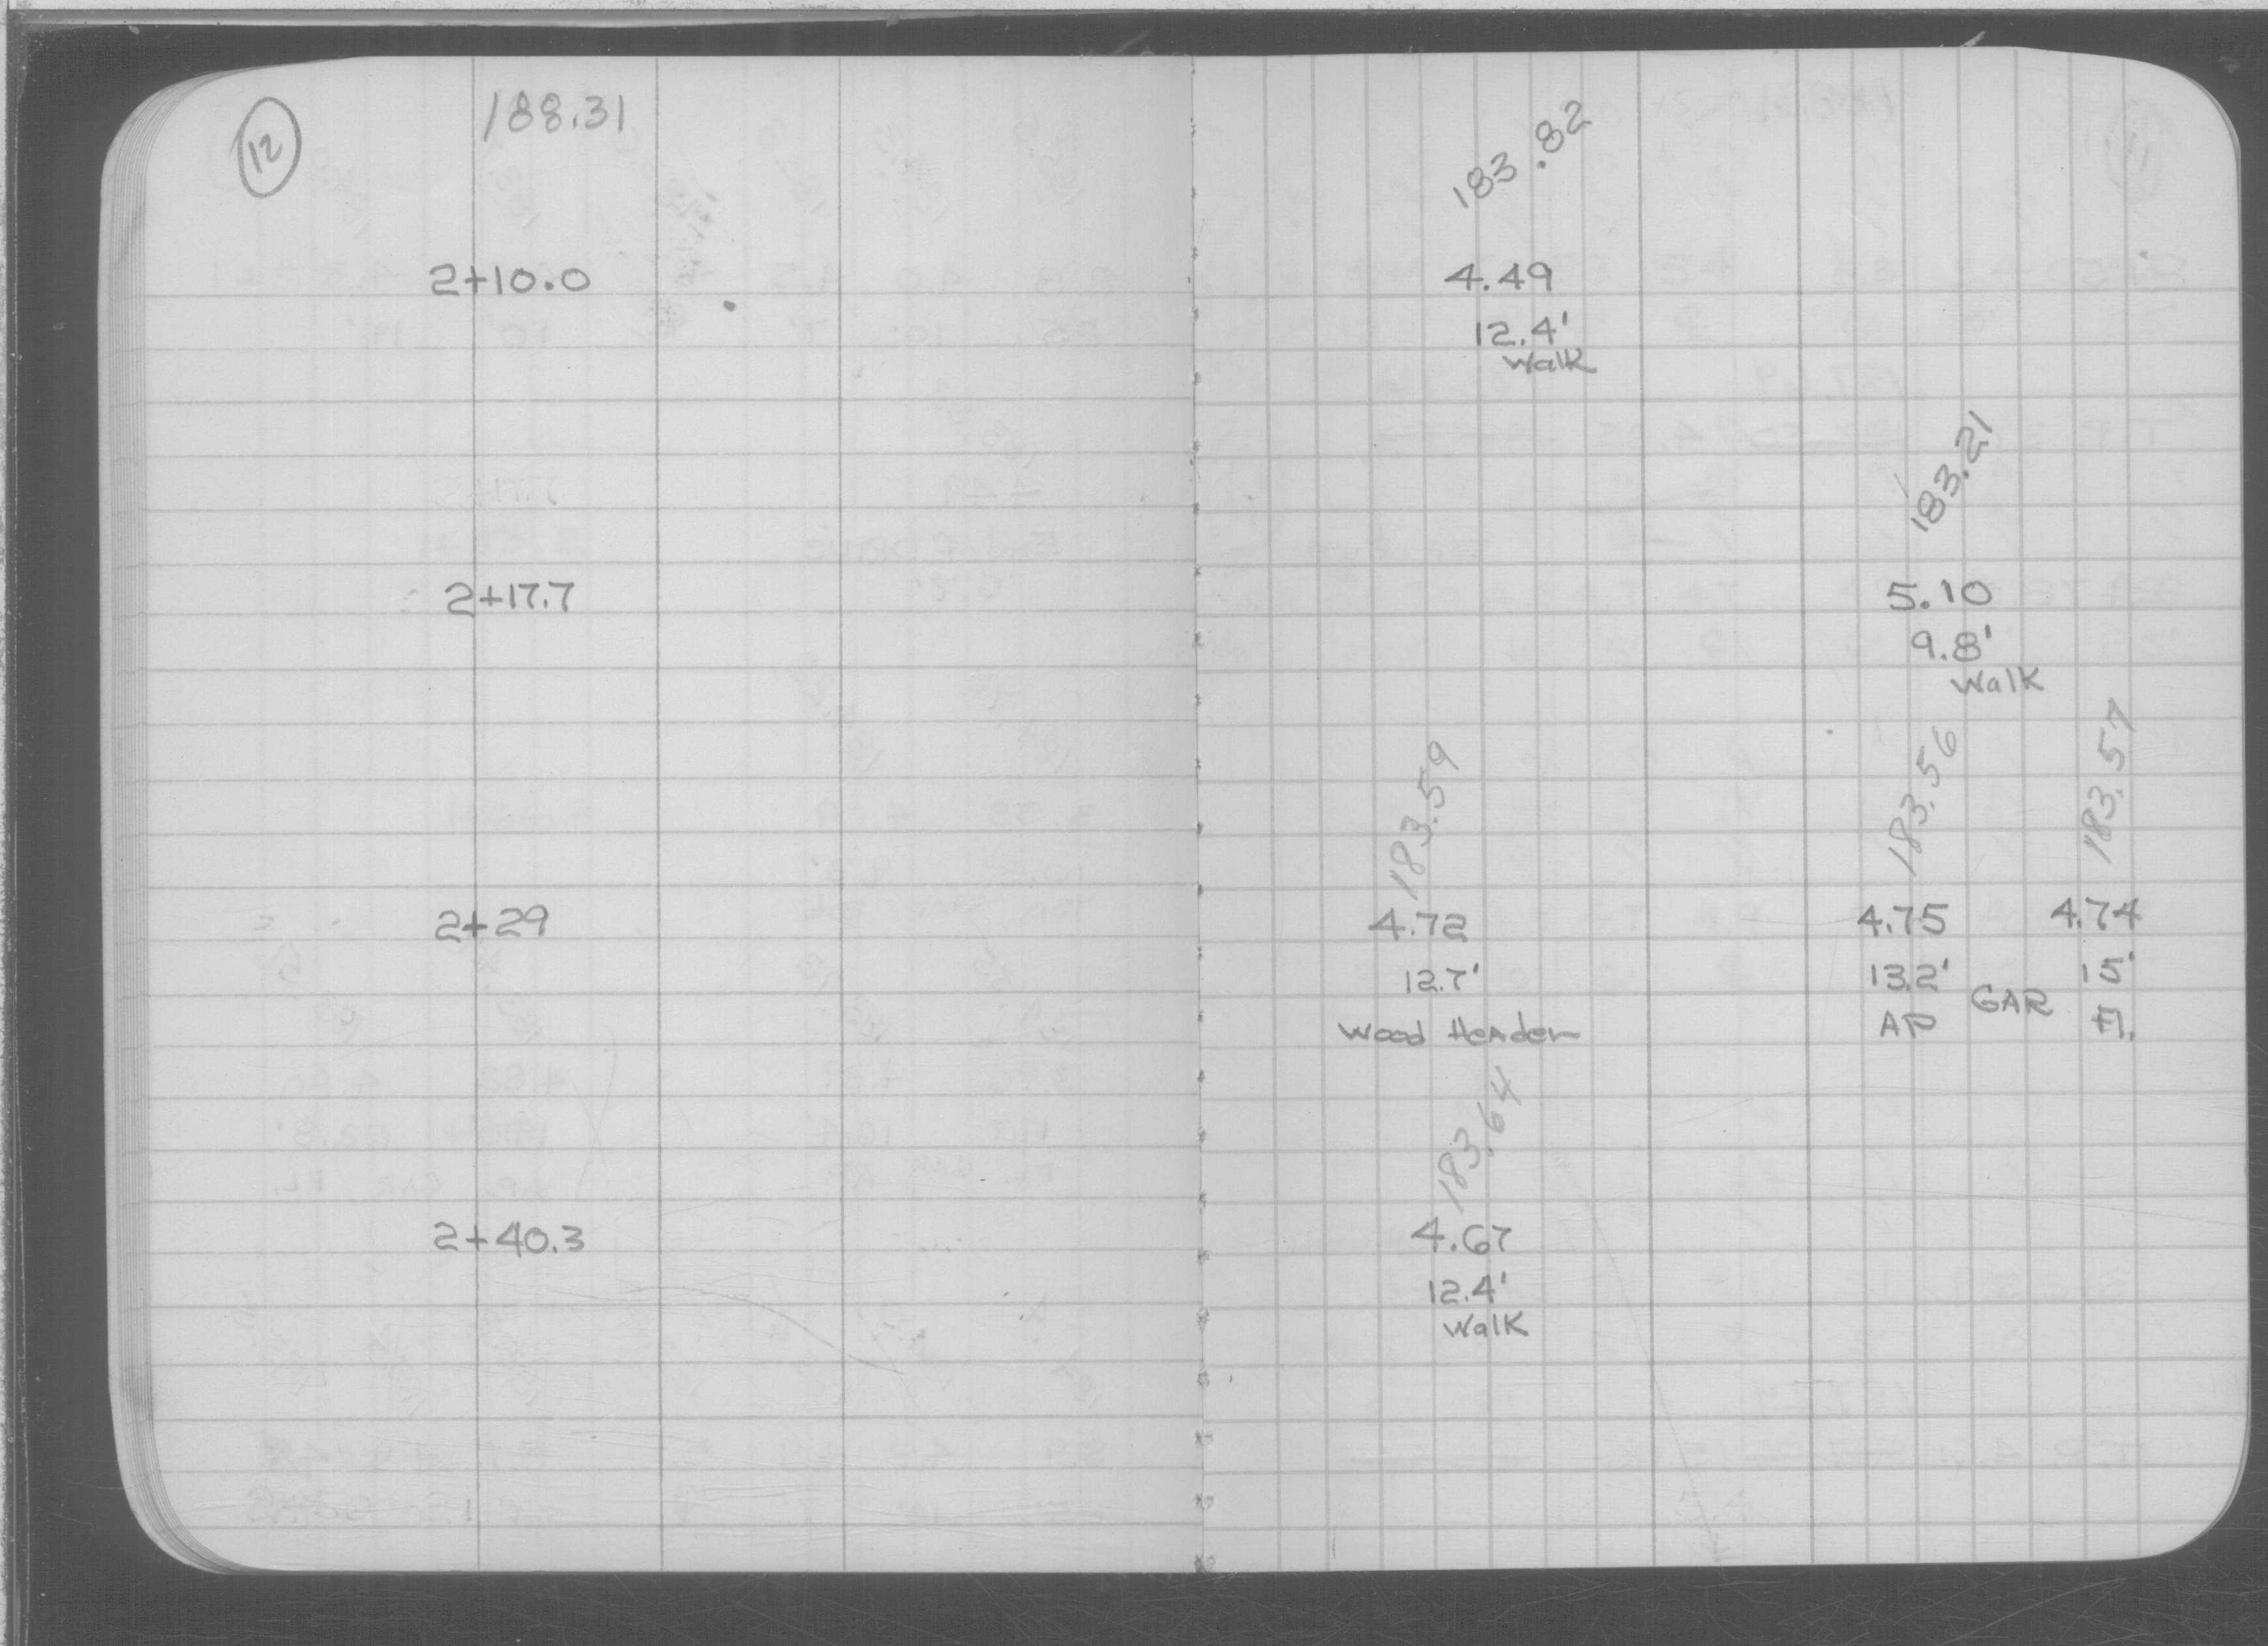 12
188.31
183.82
2+10.0 4.49
12.4'
Walk
183.21
2+17.7 5.10
9.8'
Walk
183.59 183.56 183.57
2+29 4.72 4.75 4.74
12.7' 13.2' 15'
Wood Header AP GAR Fl.
183.64
2+40.3 4.67
12.4'
Walk